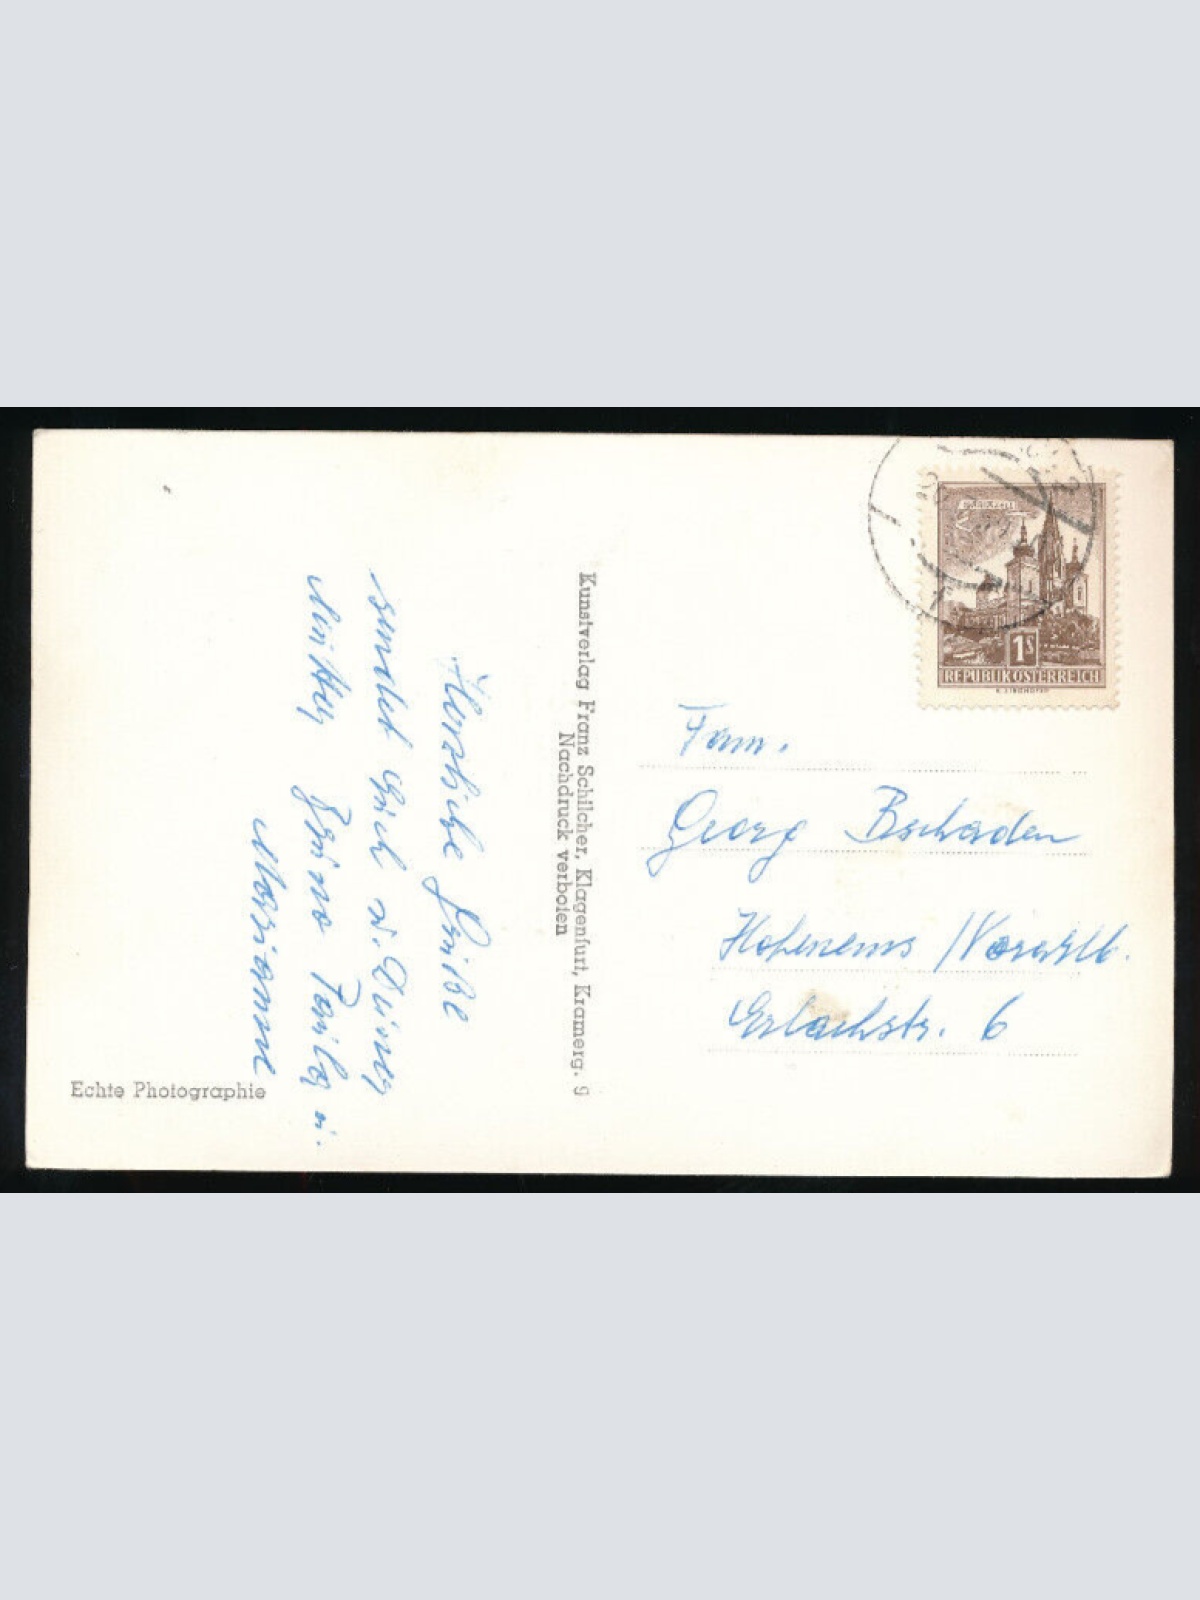 Herzliche Grüße
sendet Euch u. Deiner
Mutter Bruno Paula u.
Marianne
Echte Photographie
Kunstverlag Franz Schilcher, Klagenfurt, Kramerg. 9
Nachdruck verboten
MARIAZELL
1S
REPUBLIK ÖSTERREICH
Fam.
Georg Bschaden
Hohenems / Vorarlb.
Erlachstr. 6